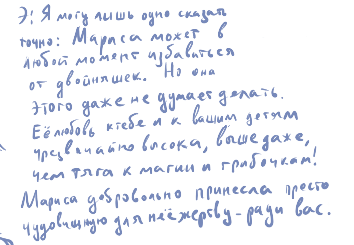 Э: Я могу лишь одно сказать
точно: Мариса может в
любой момент избавиться
от двойняшек. Но она
этого даже не думает делать.
Её любовь к тебе и к вашим детям
чрезвычайно высока, выше даже,
чем тяга к магии и грибочкам!
Мариса добровольно принесла просто
чудовищную для неё жертву - ради вас.